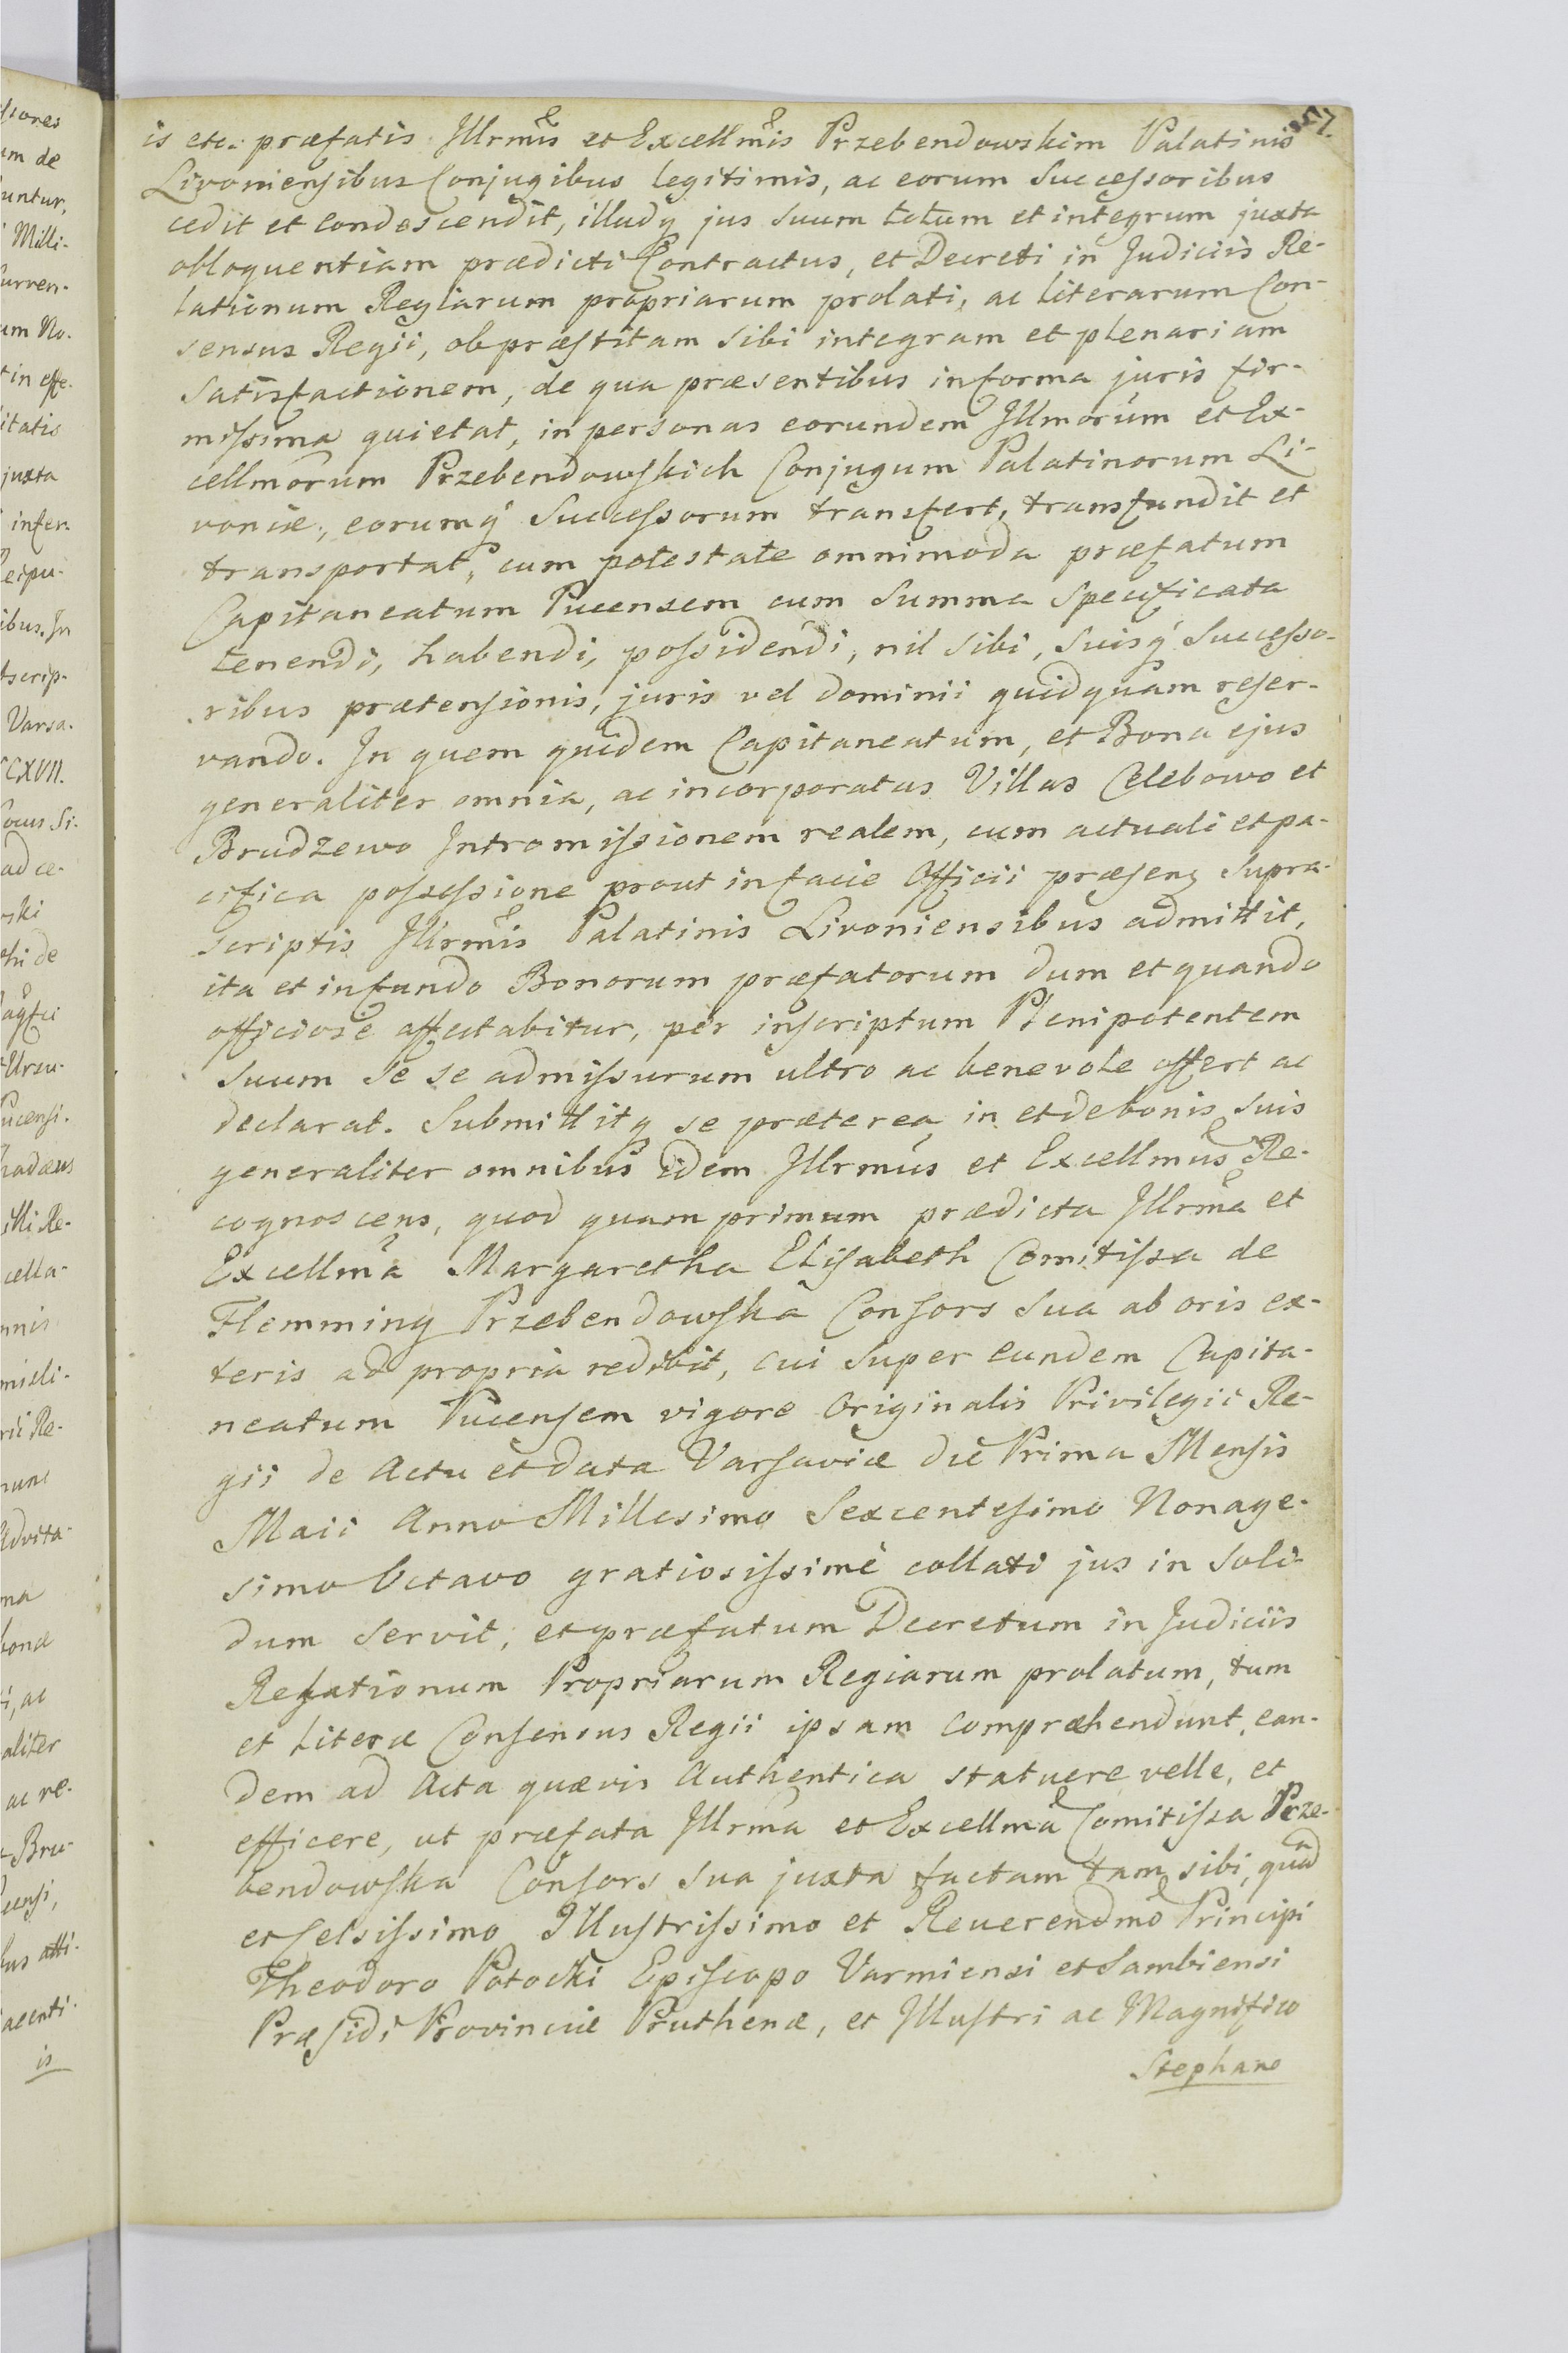 is etc. præfatis Illrmis et Excellmis Przebendowskim Palatinis
Livoniensibus Conjugibus legitimis, ac eorum Successoribus
cedit et condescendit, illudq jus suum totum et integrum juxta
obloquentiam prædicti Contractus, et Decreti in Judiciis Re-
lationum Regiarum propriarum prolati, ac literarum Con-
sensus Regii, ob præstitam sibi integram et plenariam
satisfactionem, de qua præsentibus in forma juris fir-
missima quietat, in personas eorundem Illmorum et Ex-
cellmorum Przebendowskich Conjugum Palatinorum Li-
voniæ, eorumq Successorum transfert, transfundit et
transportat, cum potestate omnimoda præfatum
Capitaneatum Pucensem cum Summa Specificata
tenendi, habendi, possidendi, nil sibi, suisq Successo-
ribus prætensionis, juris vel dominii quidquam reser-
vando. In quem quidem Capitaneatum, et Bona ejus
generaliter omnia, ac incorporatas Villas Celebowo et
Brudzewo Intromissionem realem, cum actuali et pa-
cifica possessione prout in facie Officii præsens supra-
scriptis Illrmis Palatinis Livoniensibus admittit,
ita et in fundo Bonorum præfatorum dum et quando
officiose affectabitur, per inscriptum Plenipotentem
suum se se admissurum ultro ac benevole offert ac
declarat. Submittitq se præterea in et de bonis suis
generaliter omnibus idem Illrmus et Excellmus Re-
cognoscens, quod quam primum prædicta Illrma et
Excellma Margaretha Elisabeth Comitissa de
Flemming Przebendowska Consors sua ab oris ex-
teris ad propria redibit, cui super eundem Capita-
neatum Pucensem vigore Originalis Privilegii Re-
gii de Actu et data Varsaviæ die Prima Mensis
Maii Anno Millesimo Sexcentesimo Nonage-
simo Octavo gratiosissime collati jus in soli-
dum servit, et præfatum Decretum in Judiciis
Relationum Propriarum Regiarum prolatum, tum
et Literæ Consensus Regii ipsam compræhendunt, ean-
dem ad Acta quævis Authentica statuere velle, et
efficere, ut præfata Illrma et Excellma Comitissa Prze-
bendowska Consors sua juxta factam tam sibi, quā
et Celsissimo Illustrissimo et Reverendmo Principi
Theodoro Potocki Episcopo Varmiensi et Sambiensi
Præsidi Provinciæ Pruthenæ, et Illustri ac Magnifico
Stephano